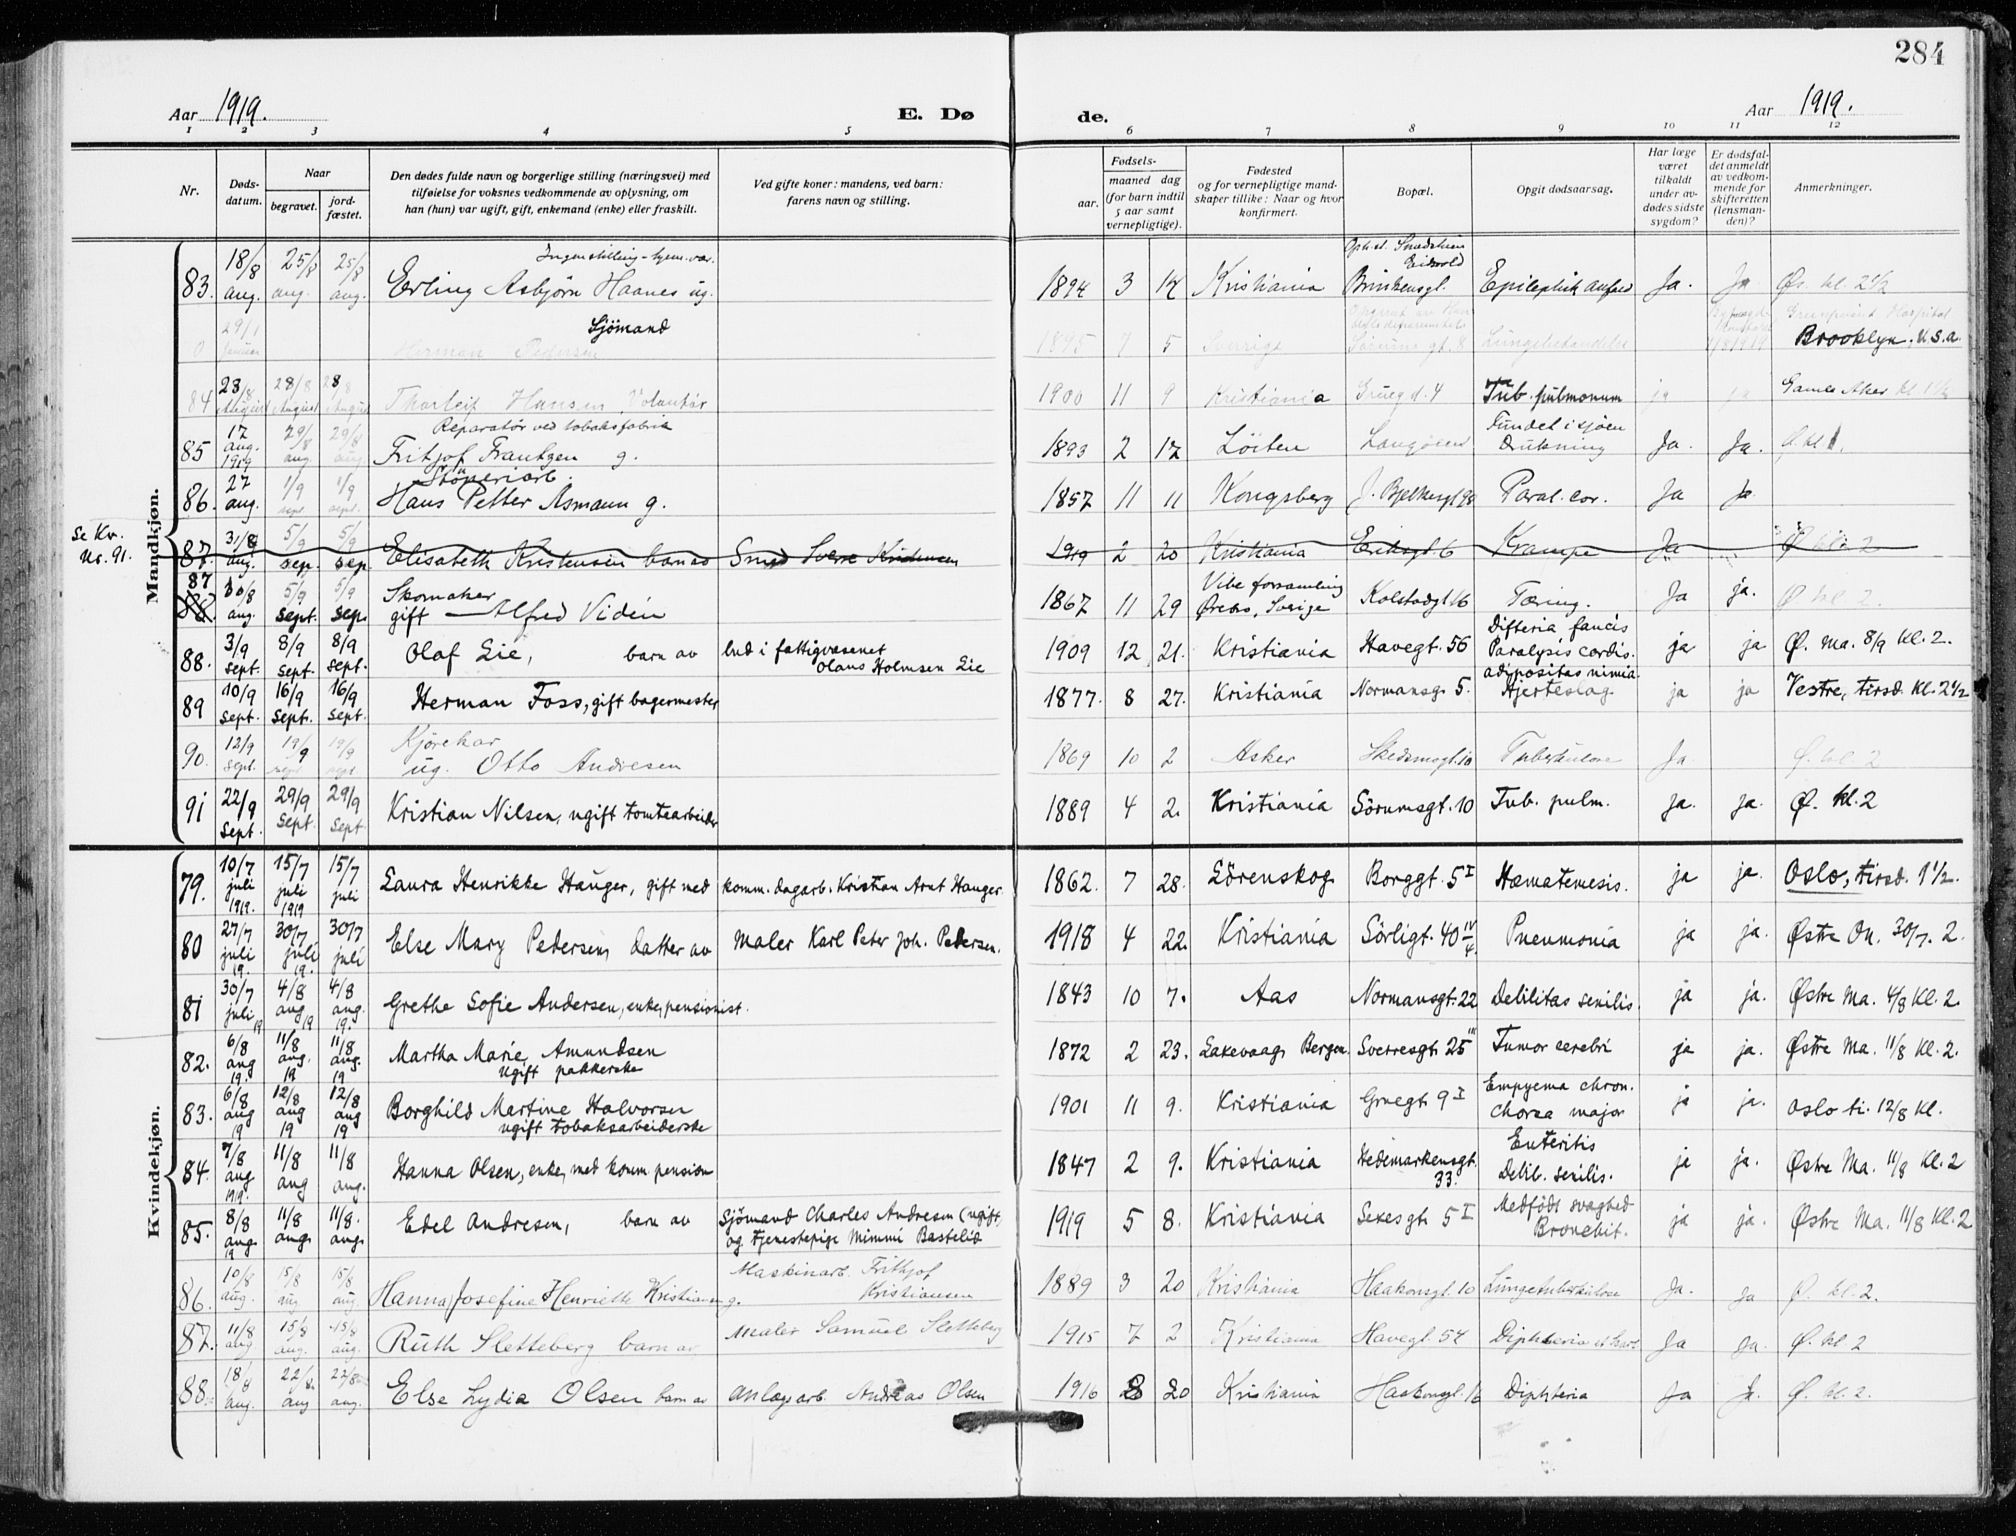 284
Aar 1919. E. Dø de. Aar 1919.
1 2 3 4 5 6 7 8 9 10 11 12
Nr. Døds-datum. Naar begravet. jord-fæstet. Den dødes fulde navn og borgerlige stilling (næringsvei) med tilføielse for voksnes vedkommende av oplysning, om han (hun) var ugift, gift, enkemand (enke) eller fraskilt. Ved gifte koner: mandens, ved barn: farens navn og stilling. Fødsels- aar. maaned dag (for barn indtil 5 aar samt vernepligtige). Fødested og for vernepligtige mandskaper tillike: Naar og hvor konfirmert. Bopæl. Opgit dødsaarsag. Har læge været tilkaldt under avdødes sidste sygdom? Er dødsfaldet anmeldt av vedkommende for skifteretten (lensmanden)? Anmerkninger.
Mandkjøn.
83. 18/8 aug. 25/8 aug. 25/8 aug. Erling Asbjørn Haanes ug. 1894 3 14 Kristiania Eidsvold Epileptisk anfald Ja. Ja Øs. kl. 2 1/2
0 29/1 Januar Sjömand Herman Pedersen 1895 7 5 Sverige Lungebetændelse Hospital Brooklyn, U.S.a.
84 23/8 August 28/8 August 28/8 August Thorleif Hansen, Volontör 1900 11 9 Kristiania Gruegd. 4 Tub. pulmonum ja ja Gamle Aker kl. 1 1/2
85 17 aug. 1919 29/8 aug. 29/8 aug Reparatør ved tobaksfabrik Fritjof Frantzen g. 1893 2 17 Löiten Langöen Fundet i sjøen Drukning Ja. Ja. Ø kl 1
86. 27 aug. 1/9 sept. 1/9 sept. Støperiarb. Hans Petter Asmann g. 1857 11 11 Kongsberg J. Bjelkesgt 98 Paral. cor. Ja Ja
Se Kv. Nr. 91.
87. 31/8 aug. 5/9 sep. 5/9 sep. Elisabeth Kristensen barn av Smed Sverre Kristensen 1919 2 20 Kristiania Eriksgt. 6 Krampe Ja Ø kl. 2
87 88. 30/8 aug. 5/9 sept. 5/9 sep. Skomaker gift — Alfred Vidén 1867 11 29 Vibe forsamling Örebro, Sverige Kolstadgt 16 Tæring. Ja ja. Ø kl 2.
88. 3/9 sept. 8/9 sept. 8/9 sept. Olaf Lie, barn av bud i fattigvæsenet Olaus Holmsen Lie 1909 12 21. Kristiania Havegt. 56 Difteria faucis Paralysis cordis. ja ja Ø. Ma. 8/9 kl. 2.
89 10/9 sept. 16/9 sept. 16/9 sept. Herman Foss, gift bagermester 1877. 8 27. Kristiania Normansg. 5. adipositas nimia. Hjerteslag ja ja Vestre, tirsd. kl. 2 1/2
90. 12/9 sept. 19/9 sept 19/9 sept Kjørekar ug. Otto Andresen 1869 10 2 Asker Skedsmogt. 10 Tuberkulose Ja. Ø. kl. 2
91 22/9 sept. 29/9 sept. 29/9 sept. Kristian Nilsen, ugift tomtearbeider 1889 4 2. Kristiania Sörumsgt. 10 Tub. pulm. ja. ja. Ø. kl. 2
Kvindekjøn.
79. 10/7 juli 1919. 15/7 juli 1919 15/7 juli Laura Henrikke Hauger, gift med komm. dagarb. Kristian Arnt Hauger. 1862. 7 28. Lörenskog Borggt. 5 I Hæmatemesis. ja ja. Oslo, tirsd. 1 1/2.
80 27/7 juli 19. 30/7 juli 19. 30/7 juli Else Mary Pedersen, datter av maler Karl Peter Joh. Pedersen. 1918 4 22. Kristiania Sörligt. 40 IV/4. Pneumonia ja ja. Østre On. 30/7. 2.
81 30/7 juli 19 4/8 aug 19 4/8 aug. 19. Grethe Sofie Andersen, enke, pensionist. 1843 10 7. Aas Normansgt. 22 Debilitas senilis. ja ja. Østre Ma. 4/8 kl. 2.
82. 6/8 aug 19. 11/8 aug. 19 11/8 aug. 19 Martha Marie Amundsen ugift pakkerske 1872 2 23. Laxevaag, Bergen. Sverresgt. 25 III Tumor cerebri ja ja. Østre Ma. 11/8 kl. 2.
83. 6/8 aug 19 12/8 aug 19 12/8 aug 19 Borghild Martine Halvorsen ugift tobaksarbeiderske 1901 11 9. Kristiania Gruegt 9 I Empyema chron. Chorea major ja ja. Oslo ti. 12/8 kl.
84. 7/8 aug 1919. 11/8 aug 11/8 aug. Hanna Olsen, enke, med komm. pension 1847 2 9. Kristiania Hedemarkensgt. 33. Enteritis Debil. senilis. ja ja. Østre Ma. 11/8 kl. 2
85. 8/8 aug. 19 11/8 aug. 11/8. aug. Edel Andresen, barn av Sjömand Charles Andresen (ugift) og tjenestepige Mimmi Bastelid 1919 5 8. Kristiania Sexesgt 5 I Medfödt svaghed Bronchit. ja ja. Østre Ma. 11/8 kl. 2
86. 10/8 aug. 15/8 aug 15/8 aug. Hanna Josefine Henriette Kristiansen g. Maskinarb. Frithjof Kristiansen 1889 3 20 Kristiania Haakonsgt. 10 Lungetuberkulose Ja. Ja Ø. kl. 2.
87. 11/8 aug 15/8 aug. 15/8 aug. Ruth Sletteberg barn av Maler Samuel Sletteberg 1915 7 2 Kristiania Havegt. 54 Diphtheria et Ja Ja. Ø. kl. 2
88. 18/8 aug. 22/8 aug 22/8 aug. Else Lydia Olsen barn av anlægsarb. Andreas Olsen 1916 8 20 Kristiania Haakonsgt. 16 Diphteria Ja Ja. Ø. kl. 2.